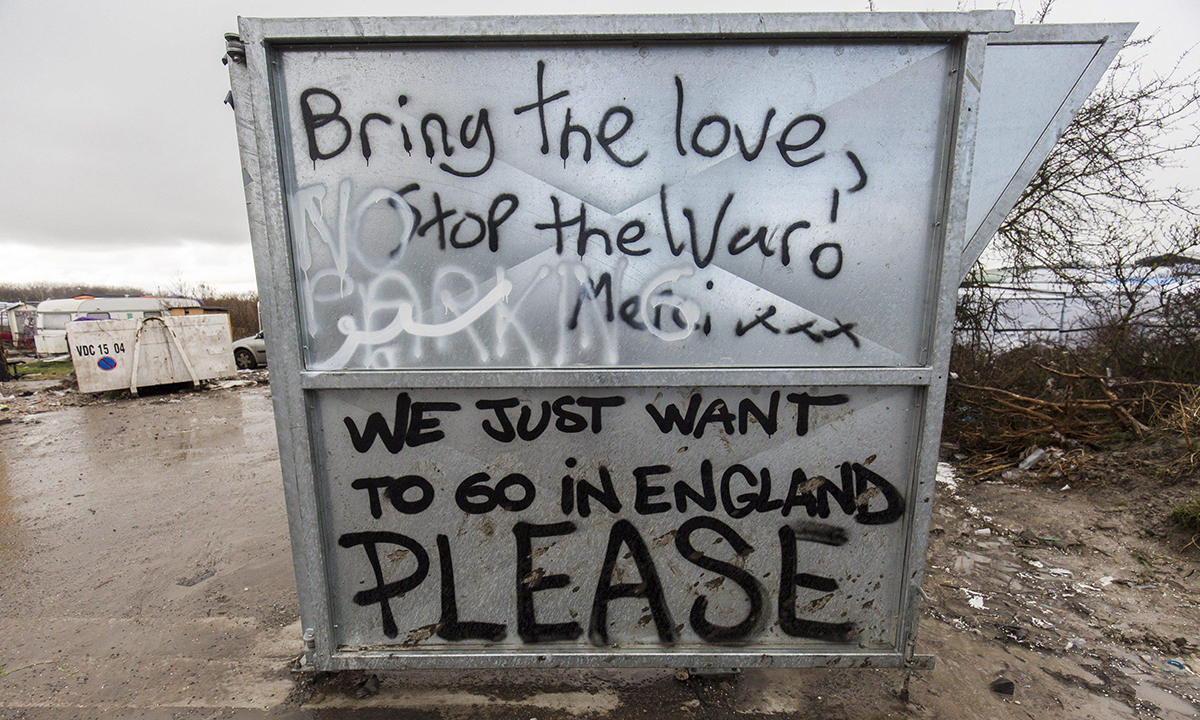 Bring the love,
Stop the War!
NO
PARKING
Merci xxx
WE JUST WANT
TO GO IN ENGLAND
PLEASE
VDC 15 04